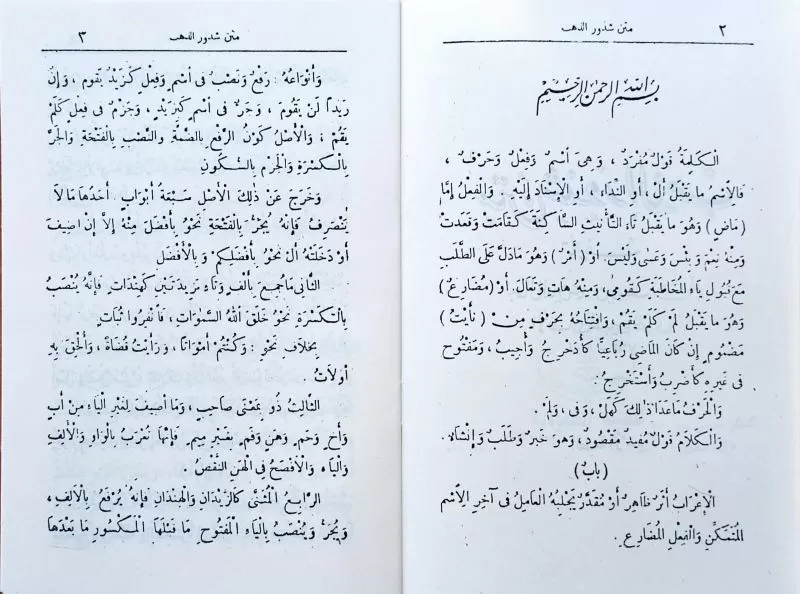 ٢
متن شذور الذهب
بِسْمِ اللهِ الرَّحْمٰنِ الرَّحِيمِ
الْكَلِمَةُ قَوْلٌ مُفْرَدٌ ، وَهِيَ اسْمٌ وَفِعْلٌ وَحَرْفٌ ،
فَالِاسْمُ مَا يَقْبَلُ أَلْ ، أَوِ النِّدَاءَ ، أَوِ الْإِسْنَادَ إِلَيْهِ . وَالْفِعْلُ إِمَّا
( مَاضٍ ) وَهُوَ مَا يَقْبَلُ تَاءَ التَّأْنِيثِ السَّاكِنَةَ كَقَامَتْ وَقَعَدَتْ
وَمِنْهُ نِعْمَ وَبِئْسَ وَعَسَى وَلَيْسَ. أَوْ ( أَمْرٌ ) وَهُوَ مَا دَلَّ عَلَى الطَّلَبِ
مَعَ قَبُولِ يَاءِ الْمُخَاطَبَةِ كَقُومِي، وَمِنْهُ هَاتِ وَتَعَالَ. أَوْ ( مُضَارِعٌ )
وَهُوَ مَا يَقْبَلُ لَمْ كَلَمْ يَقُمْ ، وَافْتِتَاحُهُ بِحَرْفٍ مِنْ ( نَأَيْتُ )
مَضْمُومٍ إِنْ كَانَ الْمَاضِي رُبَاعِيًّا كَأُدَحْرِجُ وَأُجِيبُ ، وَمَفْتُوحٍ
فِى غَيْرِهِ كَأَضْرِبُ وَأَسْتَخْرِجُ .
وَالْحَرْفُ مَا عَدَا ذٰلِكَ كَهَلْ ، وَفِى ، وَلَمْ .
وَالْكَلَامُ قَوْلٌ مُفِيدٌ مَقْصُودٌ ، وَهُوَ خَبَرٌ وَطَلَبٌ وَإِنْشَاءٌ .
( بابٌ )
الْإِعْرَابُ أَثَرٌ ظَاهِرٌ أَوْ مُقَدَّرٌ يَجْلِبُهُ الْعَامِلُ فِى آخِرِ الِاسْمِ
الْمُتَمَكِّنِ وَالْفِعْلِ الْمُضَارِعِ .
متن شذور الذهب
٣
وَأَنْوَاعُهُ : رَفْعٌ وَنَصْبٌ فِى اسْمٍ وَفِعْلٍ كَزَيْدٌ يَقُومُ ، وَإِنَّ
زَيْدًا لَنْ يَقُومَ ، وَجَرٌّ فِى اسْمٍ كَبِزَيْدٍ ، وَجَزْمٌ فِى فِعْلٍ كَلَمْ
يَقُمْ ، وَالْأَصْلُ كَوْنُ الرَّفْعِ بِالضَّمَّةِ وَالنَّصْبِ بِالْفَتْحَةِ وَالْجَرِّ
بِالْكَسْرَةِ وَالْجَزْمِ بِالسُّكُونِ
وَخَرَجَ عَنْ ذٰلِكَ الْأَصْلِ سَبْعَةُ أَبْوَابٍ ، أَحَدُهَا مَا لَا
يَنْصَرِفُ فَإِنَّهُ يُجَرُّ بِالْفَتْحَةِ نَحْوُ بِأَفْضَلَ مِنْهُ إِلَّا إِنْ أُضِيفَ
أَوْ دَخَلَتْهُ أَلْ نَحْوُ بِأَفْضَلِكُمْ وَبِالْأَفْضَلِ
الثَّانِى مَا جُمِعَ بِأَلِفٍ وَتَاءٍ مَزِيدَتَيْنِ كَهِنْدَاتٍ فَإِنَّهُ يُنْصَبُ
بِالْكَسْرَةِ نَحْوُ خَلَقَ اللهُ السَّمٰوَاتِ، فَانْفِرُوا ثُبَاتٍ
بِخِلَافِ نَحْوِ : وَكُنْتُمْ أَمْوَاتًا ، وَرَأَيْتُ قُضَاةً ، وَأُلْحِقَ بِهِ
أُولَاتُ .
الثَّالِثُ ذُو بِمَعْنَى صَاحِبٍ ، وَمَا أُضِيفَ لِغَيْرِ الْيَاءِ مِنْ أَبٍ
وَأَخٍ وَحَمٍ وَهَنٍ وَفَمٍ بِغَيْرِ مِيمٍ فَإِنَّهَا تُعْرَبُ بِالْوَاوِ وَالْأَلِفِ
وَالْيَاءِ وَالْأَفْصَحُ فِى الْهَنِ النَّقْصُ .
الرَّابِعُ الْمُثَنَّى كَالزَّيْدَانِ وَالْهِنْدَانِ فَإِنَّهُ يُرْفَعُ بِالْأَلِفِ ،
وَيُجَرُّ وَيُنْصَبُ بِالْيَاءِ الْمَفْتُوحِ مَا قَبْلَهَا الْمَكْسُورِ مَا بَعْدَهَا